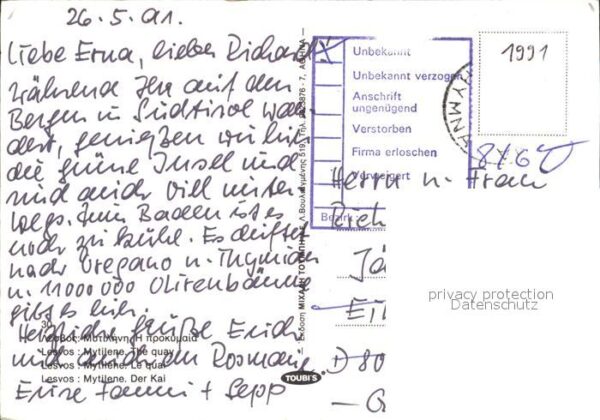 26.5.91.
Liebe Erna, lieber Richard!
während Ihr auf den
Bergen in Südtirol wan-
dert, genießen wir hier
die grüne Insel und
sind wieder viel unter-
wegs. Zum Baden ist es
noch zu kühl. Es duftet
nach Oregano u. Thymian
u. 11000000 Olivenbäume
gibt es hier.
Herzliche Grüße Erich
und
Eure Fanni + Sepp
30
Λέσβος: Μυτιλήνη. Η προκυμαία
Lesvos : Mytilene. The quay
Lesvos : Mytilène. Le quai
Lesvos : Mytilene. Der Kai
TOUBI'S
Unbekannt
Unbekannt verzogen
Anschrift
ungenügend
Verstorben
Firma erloschen
Verweigert
Bezirk
1991
Herrn u. Frau
Rich
Jä
D 80
privacy protection
Datenschutz